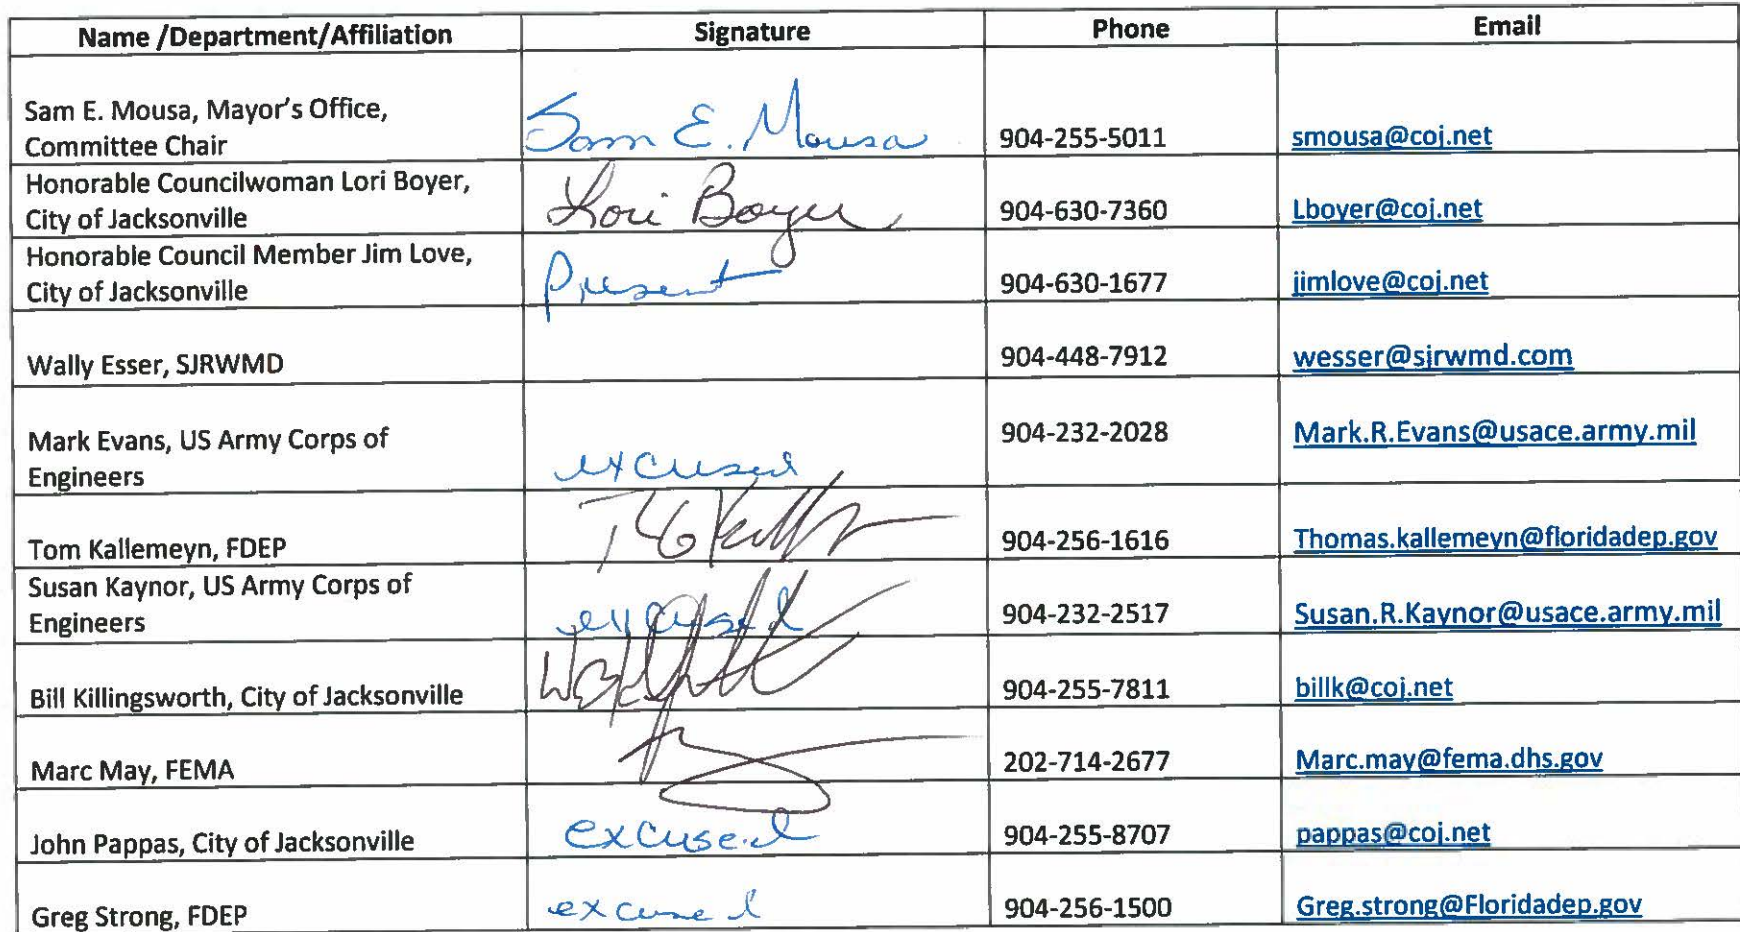 Name /Department/Affiliation Signature Phone Email
Sam E. Mousa, Mayor's Office,
Committee Chair Sam E. Mousa 904-255-5011 smousa@coj.net
Honorable Councilwoman Lori Boyer,
City of Jacksonville Lori Boyer 904-630-7360 Lboyer@coj.net
Honorable Council Member Jim Love,
City of Jacksonville Present 904-630-1677 jimlove@coj.net
Wally Esser, SJRWMD 904-448-7912 wesser@sjrwmd.com
Mark Evans, US Army Corps of
Engineers excused 904-232-2028 Mark.R.Evans@usace.army.mil
Tom Kallemeyn, FDEP 904-256-1616 Thomas.kallemeyn@floridadep.gov
Susan Kaynor, US Army Corps of
Engineers excused 904-232-2517 Susan.R.Kaynor@usace.army.mil
Bill Killingsworth, City of Jacksonville 904-255-7811 billk@coj.net
Marc May, FEMA 202-714-2677 Marc.may@fema.dhs.gov
John Pappas, City of Jacksonville excused 904-255-8707 pappas@coj.net
Greg Strong, FDEP excused 904-256-1500 Greg.strong@Floridadep.gov